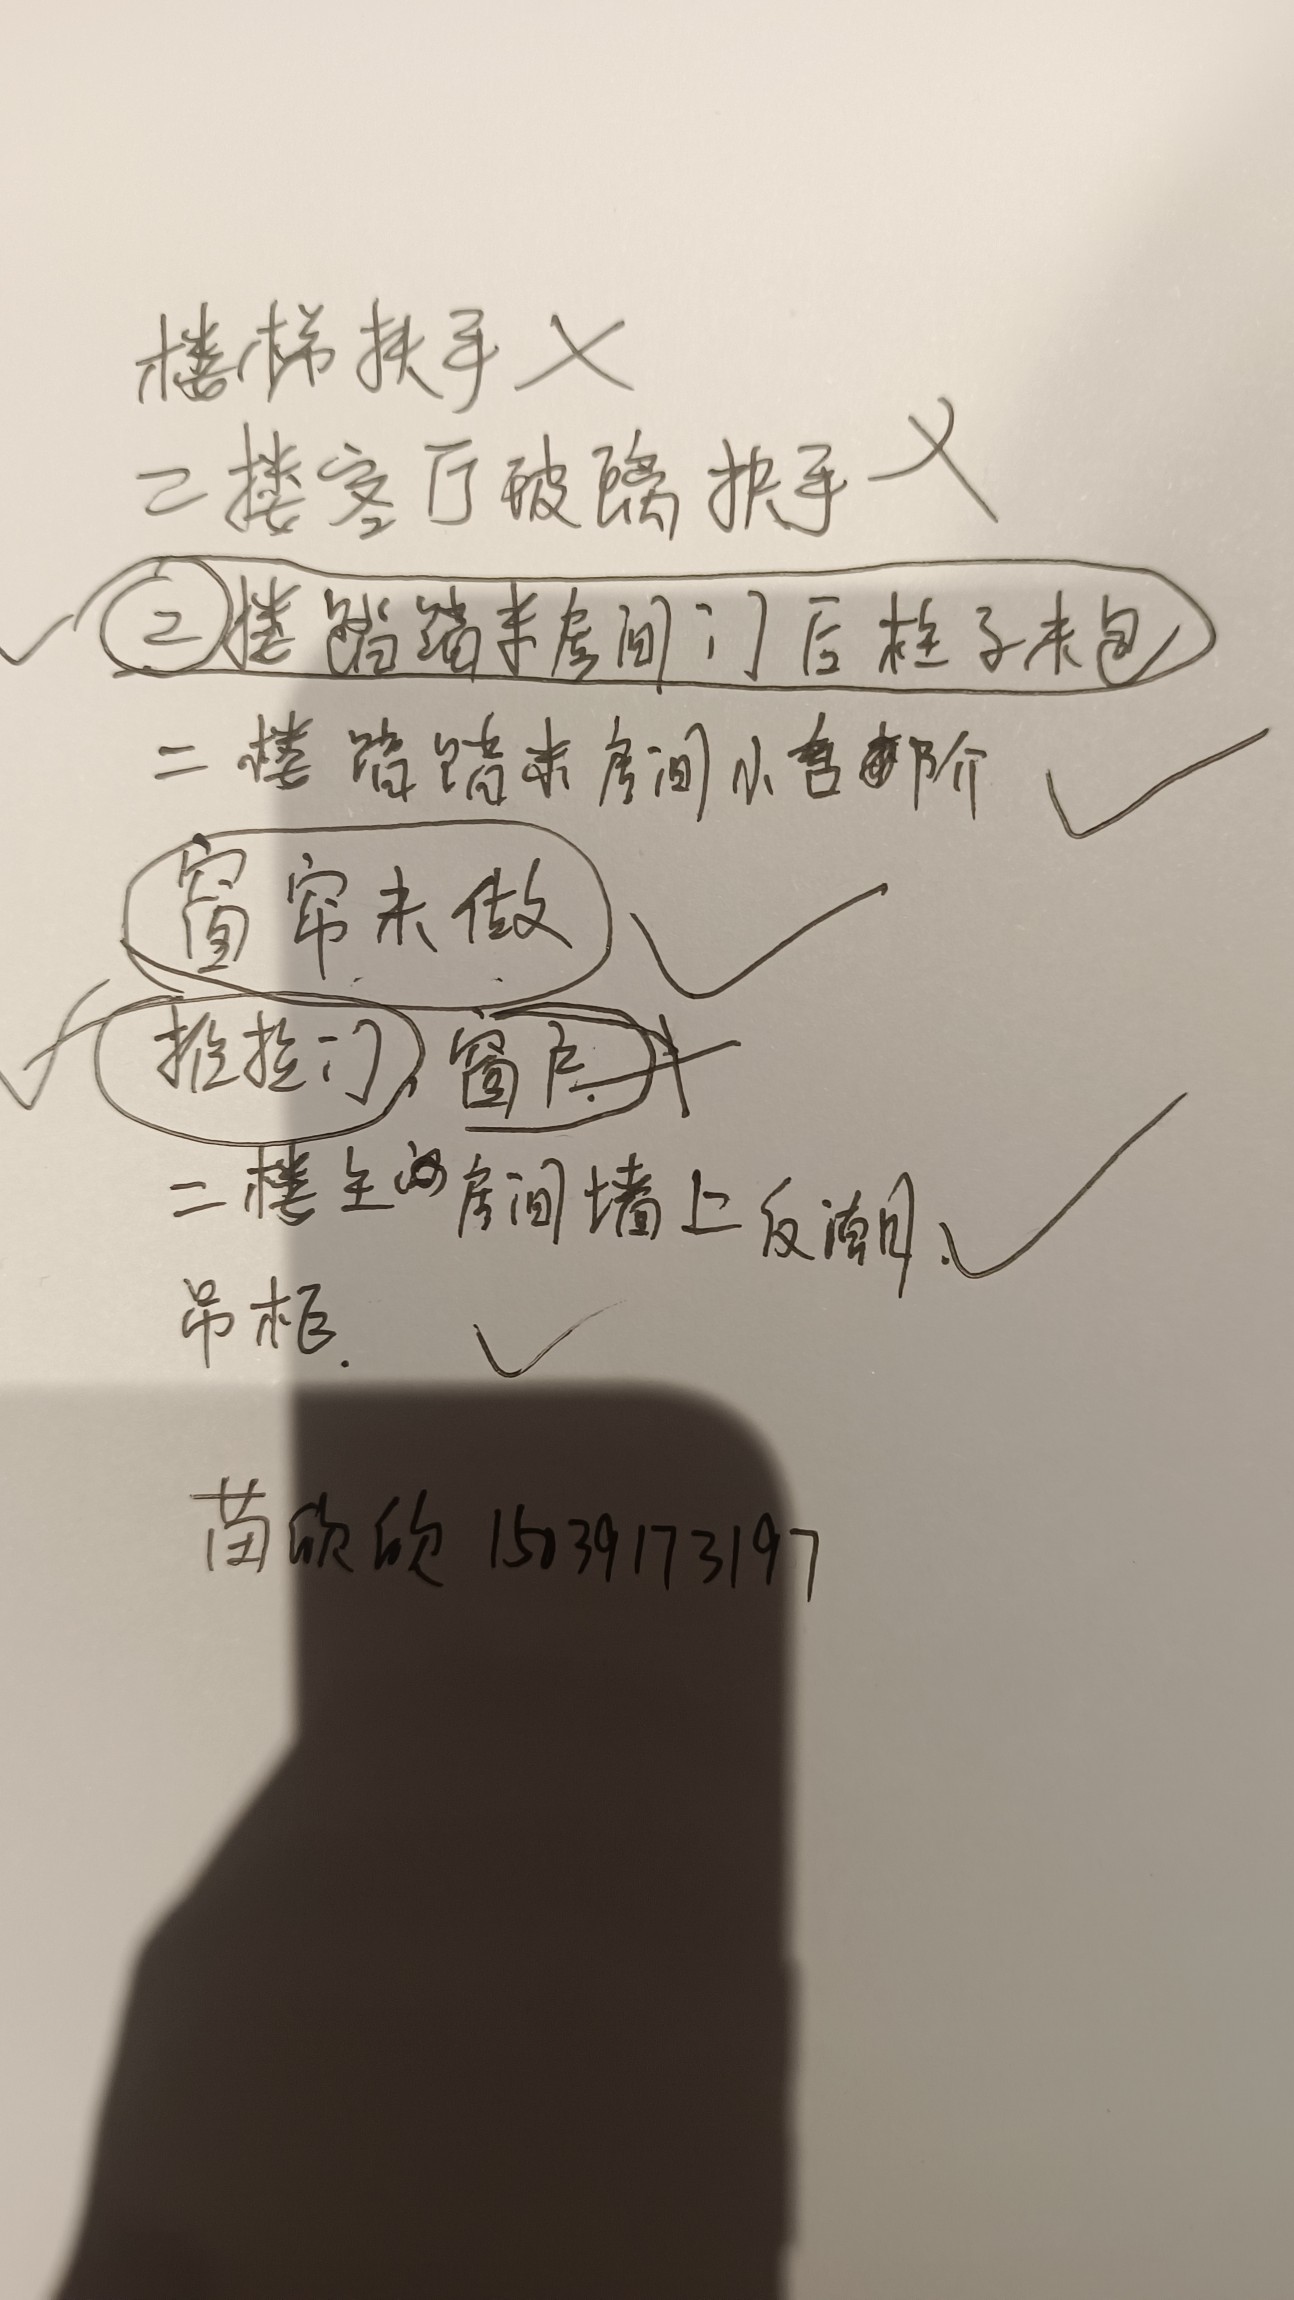 楼梯扶手 ×
二楼客厅玻璃扶手 ×
✓ ②楼踏踏米房间门后柱子未包
二楼踏踏米房间小台阶 ✓
窗帘未做 ✓
✓ 推拉门、窗户. ×
二楼主卧房间墙上反潮. ✓
吊柜. ✓
苗欣欣 15039173197